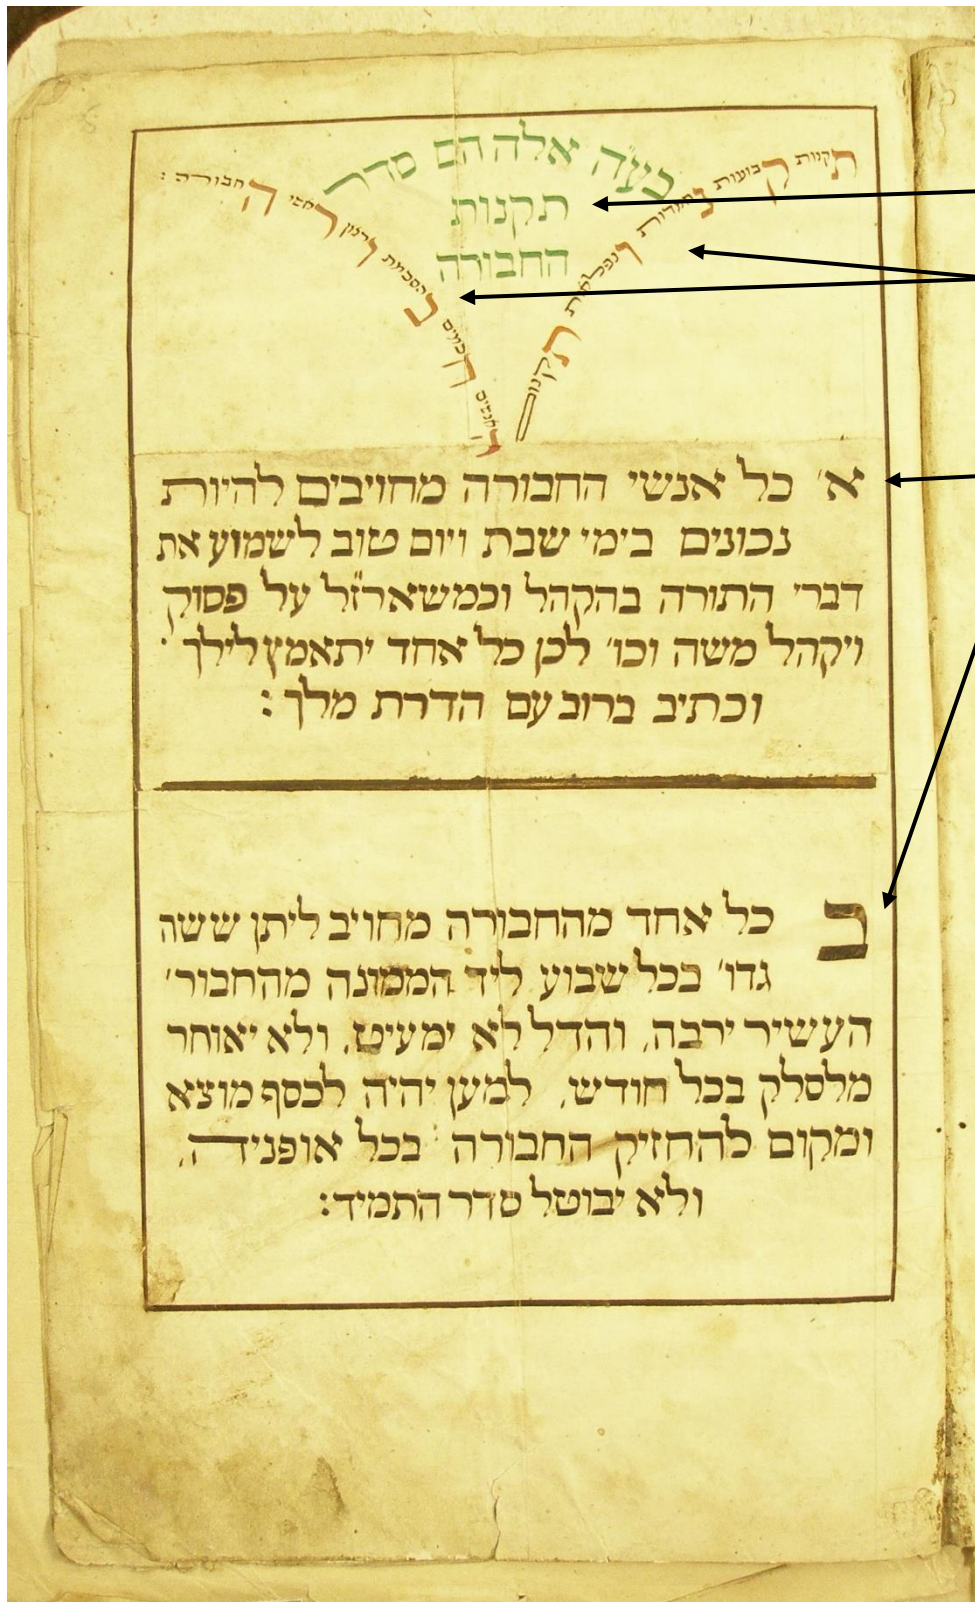 אלה הם סדר
תקנות
החבורה
תקנות קבועות ונפלאות
חכמים בהסכמת ורצון החבורה :
א׳ כל אנשי החבורה מחויבים להיות
נכונים בימי שבת ויום טוב לשמוע את
דברי התורה בהקהל וכמשארז״ל על פסוק
ויקהל משה וכו׳ לכן כל אחד יתאמץ לילך ·
וכתיב ברוב עם הדרת מלך :
ב כל אחד מהחבורה מחויב ליתן ששה
גדו׳ בכל שבוע ליד הממונה מהחבור׳
העשיר ירבה, והדל לא ימעיט, ולא יאוחר
מלסלק בכל חודש, למען יהיה לכסף מוצא
ומקום להחזיק החבורה בכל אופניה,
ולא יבוטל סדר התמיד: